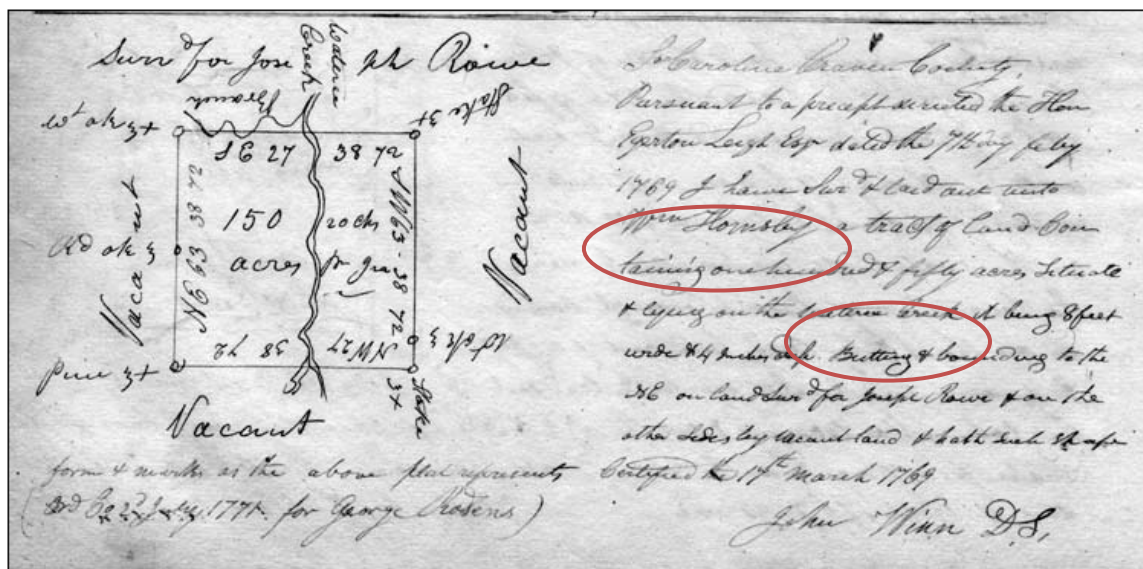 Surv^d for Joseph Rowe
Waterie
Creek
Branch
Stake 3+
W^t ok 3+
S E 27 38 72
Vacant
N E 63 38 72
Rd ok 3
150 acres
rocks
S W 63 - 38 72
Vacant
Pine 3+
N W 27 38 72
Stake
3+
Vacant
So Carolina Craven County,
Pursuant to a precept directed the Hon
Egerton Leigh Esq^r dated the 7th day feby
1769 I have Surv^d & laid out unto
Wm Hornsby a tract of land Con
taining one hundred & fifty acres Situate
& lying on the Waterie Creek it being 8 feet
wide & 4 Inches deep Butting & bounding to the
NE on land Surv^d for Joseph Rowe & on the
other sides by vacant land & hath such shape
form & marks as the above plat represents Certified the 17th march 1769
for George
John Winn D.S.